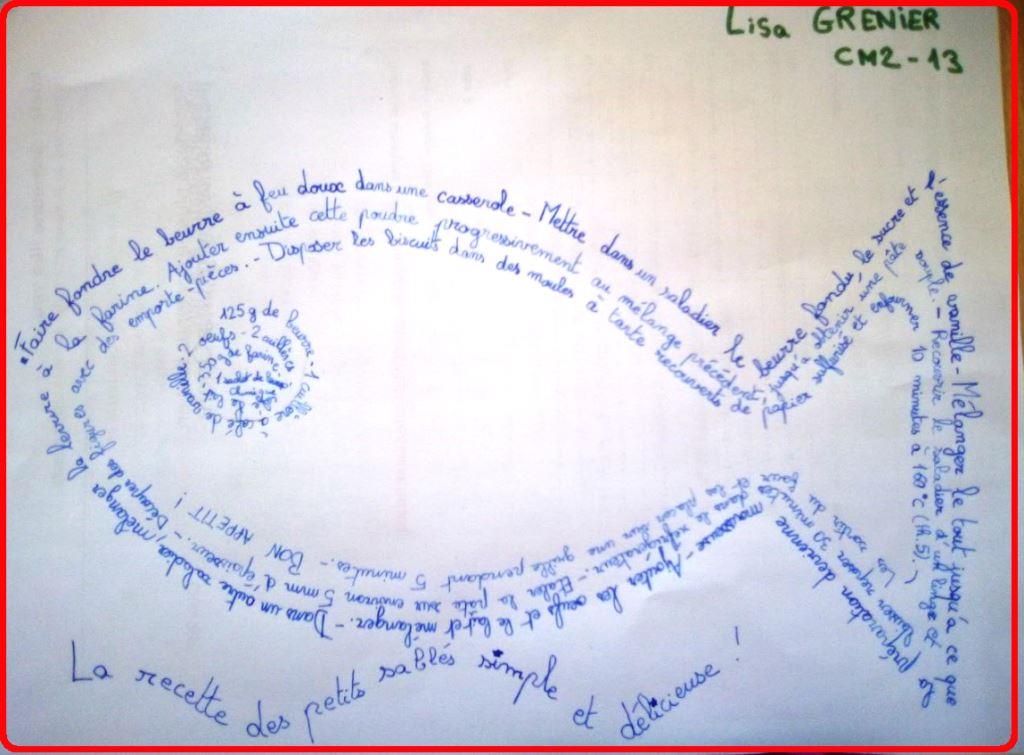 Lisa GRENIER
CM2-13
Faire fondre le beurre à feu doux dans une casserole - Mettre dans un saladier le beurre fondu, le sucre et
l'essence de vanille - Mélanger le tout jusqu'à ce que
la préparation devienne
mousseuse - Ajouter les oeufs et le lait et mélanger. - Dans un autre saladier, mélanger la levure à
la farine. Ajouter ensuite cette poudre progressivement au mélange précédent, jusqu'à obtenir une pâte
souple. - Recouvrir le saladier d'un linge et
laisser reposer 30 minutes
dans le réfrigérateur. - Etaler la pâte sur environ 5 mm d'épaisseur. - Découper des figures avec des
emporte-pièces. - Disposer les biscuits dans des moules à tarte recouverts de papier sulfurisé et enfourner
10 minutes à 160°C (th.5).
Les sortir du four
et les placer sur une grille pendant 5 minutes. - BON APPETIT !
125 g de beurre - 1 cuillère à café de vanille - 2 oeufs - 2 cuillères
g de farine
1 sachet de levure
La recette des petits sablés simple et délicieuse !